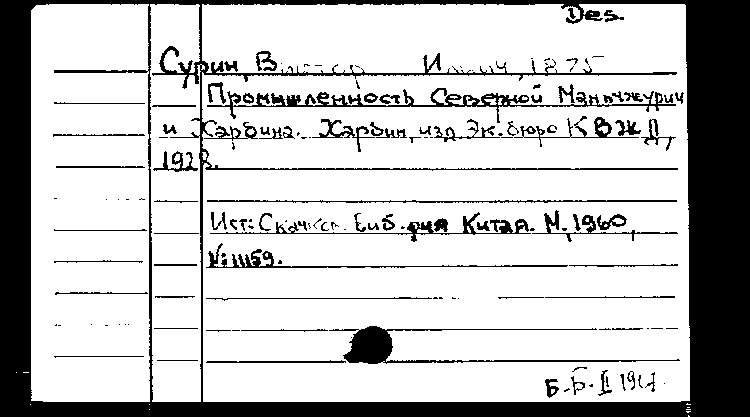 Des.
Сурин, Виктор Ильич, 1875
Промышленность Северной Маньчжурии
и Харбина. Харбин, изд. Эк. бюро КВЖД,
1928.
Ист: Скачков. Библ-фия Китая. М, 1960,
№ 11159.
Б.Б. II